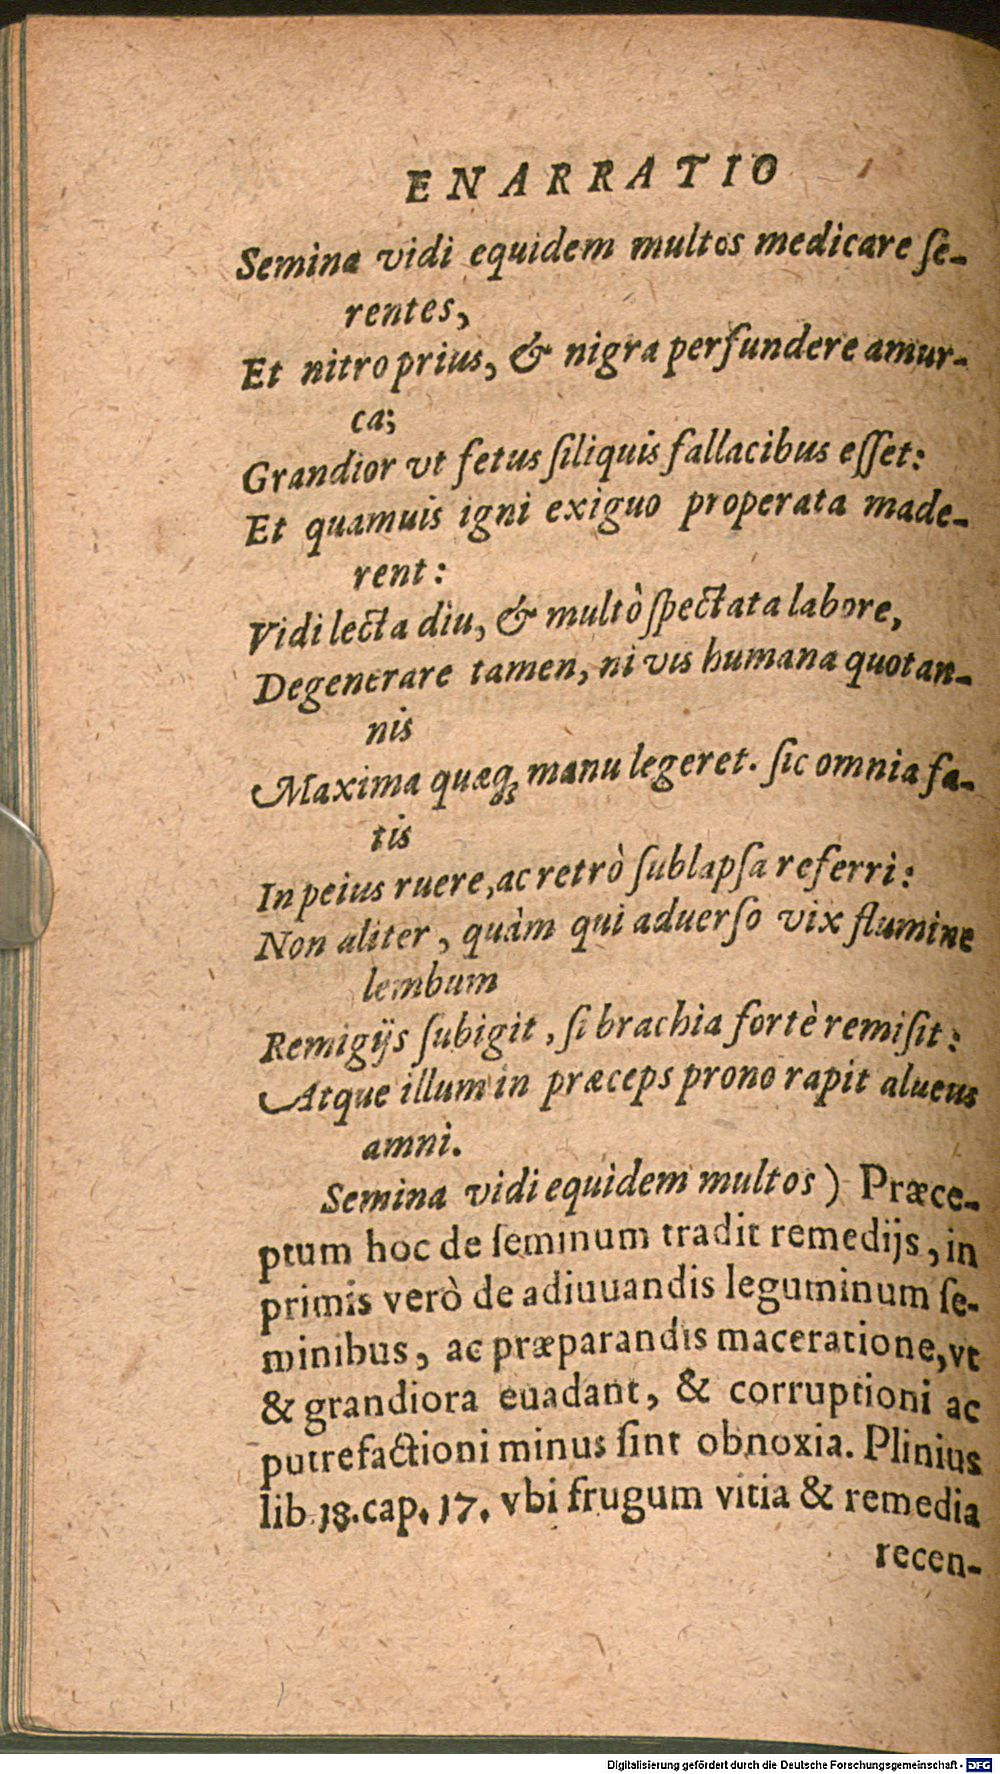 ENARRATIO
Semina vidi equidem multos medicare ſe-
rentes,
Et nitro prius, & nigra perfundere amur-
ca;
Grandior vt fetus ſiliquis fallacibus eſſet:
Et quamuis igni exiguo properata made-
rent:
Vidi lecta diu, & multò ſpectata labore,
Degenerare tamen, ni vis humana quotan-
nis
Maxima quæq; manu legeret. ſic omnia fa-
tis
In peius ruere, ac retrò ſublapſa referri:
Non aliter, quàm qui aduerſo vix flumine
lembum
Remigijs ſubigit, ſi brachia fortè remiſit:
Atque illum in præceps prono rapit alueus
amni.
Semina vidi equidem multos) Præce-
ptum hoc de ſeminum tradit remedijs, in
primis verò de adiuuandis leguminum ſe-
minibus, ac præparandis maceratione, vt
& grandiora euadant, & corruptioni ac
putrefactioni minus ſint obnoxia. Plinius
lib. 18. cap. 17. vbi frugum vitia & remedia
recen-
Digitalisierung gefördert durch die Deutsche Forschungsgemeinschaft - DFG